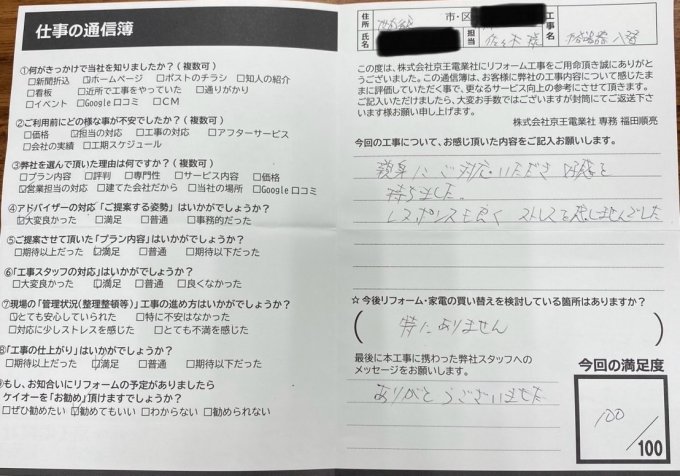 仕事の通信簿
①何がきっかけで当社を知りましたか?(複数可)
□新聞折込 ☑ホームページ □ポストのチラシ □知人の紹介
□看板 □近所で工事をやっていた □通りがかり
□イベント □Google口コミ □CM
②ご利用前にどの様な事が不安でしたか?(複数可)
□価格 ☑担当の対応 □工事の対応 □アフターサービス
□会社の実績 □工期スケジュール
③弊社を選んで頂いた理由は何ですか?(複数可)
□プラン内容 □評判 □専門性 □サービス内容 □価格
☑営業担当の対応 □建てた会社だから □当社の場所 □Google口コミ
④アドバイザーの対応「ご提案する姿勢」はいかがでしょうか?
☑大変良かった □満足 □普通 □事務的だった
⑤ご提案させて頂いた「プラン内容」はいかがでしょうか?
□期待以上だった ☑満足 □普通 □期待以下だった
⑥「工事スタッフの対応」はいかがでしょうか?
□大変良かった ☑満足 □普通 □良くなかった
⑦現場の「管理状況(整理整頓等)」工事の進め方はいかがでしょうか?
☑とても安心していられた □特に不安はなかった
□対応に少しストレスを感じた □とても不満を感じた
⑧「工事の仕上がり」はいかがでしょうか?
□期待以上だった ☑満足 □普通 □期待以下だった
もし、お知合いにリフォームの予定がありましたら
ケイオーを「お勧め」頂けますでしょうか?
□ぜひ勧めたい ☑勧めてもいい □わからない □勧められない
住所 市・区
氏名 担当 佐々木 様
工事名
この度は、株式会社京王電業社にリフォーム工事をご用命頂き誠にありがとうございました。この通信簿は、お客様に弊社の工事内容について感じたままに評価していただく事で、更なるサービス向上の参考にさせて頂きます。
ご記入いただけましたら、大変お手数ではございますが封筒にてご返送下さいます様お願い申し上げます。
株式会社京王電業社 専務 福田順亮
今回の工事について、お感じ頂いた内容をご記入お願いします。
親身にご対応いただき 好感を
持ちました。
レスポンスも良く ストレスを感じませんでした
☆今後リフォーム・家電の買い替えを検討している箇所はありますか?
(特にありません)
最後に本工事に携わった弊社スタッフへの
メッセージをお願いします。
ありがとうございました
今回の満足度
100
/100